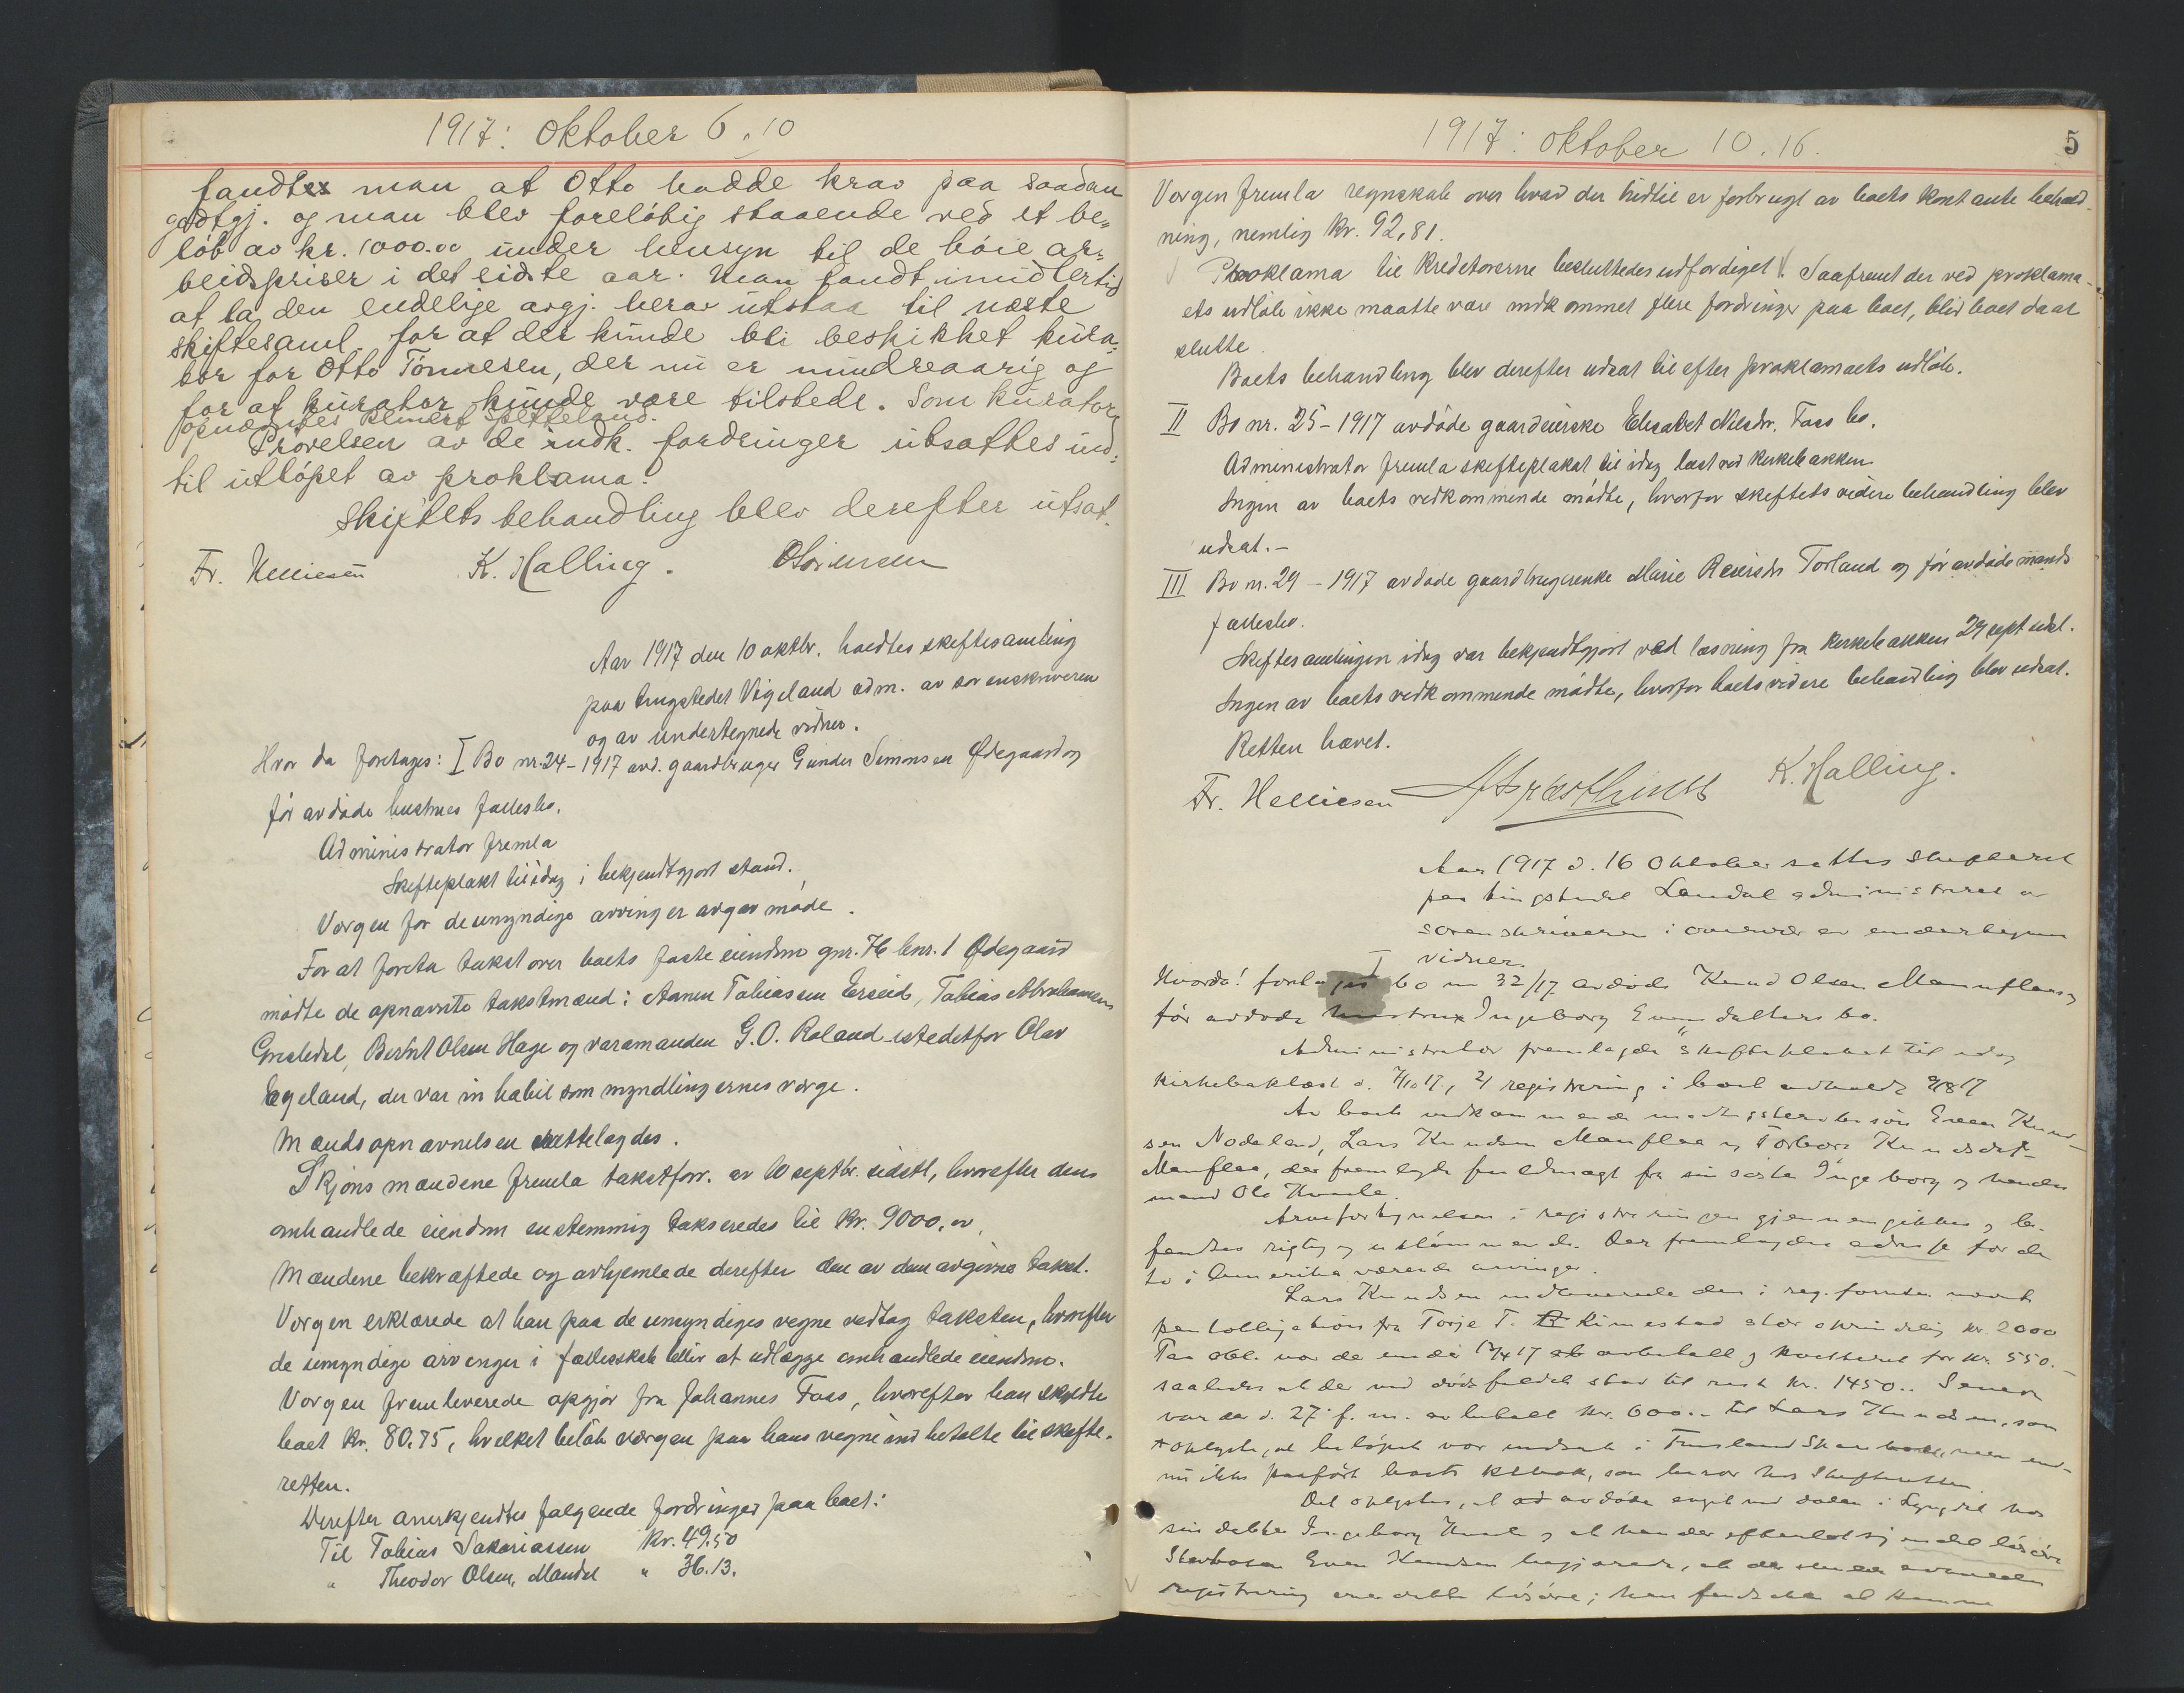 1917: Oktober 6. 10
fandtes man at Otto hadde krav paa saadan
godtgj. og man blev foreløbig staaende ved et be-
løb av kr. 1000.00 under hensyn til de høie ar-
beidspriser i det sidste aar. Man fandt imidlertid
at la den endelige avgj. herav utstaa til næste
skiftesaml. for at der kunde bli beskikket kura-
tor for Otto Tønnesen, der nu er mindreaarig og
for at kurator kunde være tilstede. Som kurator
opnævntes Reinert Spetteland.
Prøvelsen av de indk. fordringer utsattes ind-
til utløpet av proklama.
Skiftets behandling blev derefter utsat.
Fr. Helliesen K. Halling.
Aar 1917 den 10 oktbr. holdtes skiftesamling
paa tingstedet Vigeland adm. av sorenskriveren
og av undertegnede vidner.
Hvor da foretages: I Bo nr. 24-1917 avd. gaardbruger Gunder Simonsen Ødegaard og
før avdøde hustrues fællesbo.
Administrator fremla
Skifteplakt til idag i bekjendtgjort stand.
Vergen for de umyndige arvinger avgav møde.
For at foreta takst over boets faste eiendom gnr. 76 bnr. 1 Ødegaard
mødte de opnævnte takstmænd: Aanen Tobiassen Erseid, Tobias Abrahamsen
Greibdal, Berthel Olsen Hage og varamanden G. O. Roland istedetfor Olav
Egeland, der var inhabil som myndlingernes værge.
Mændsopnævnelsen rettelagdes.
Skjønsmændene fremla takstforr. av 10 septbr. sidstl, hvorefter dens
omhandlede eiendom enstemmig takseredes til kr. 9000.00.
Mændene bekræftede og avhjemlede derefter den av dem avgivne takst.
Vergen erklærede at han paa de umyndiges vegne vedtog taksten, hvorefter
de umyndige arvinger i fællesskab blir at udlægge omhandlede eiendom.
Vergen fremleverede opgjør fra Johannes Foss, hvorefter han skyldte
boet kr. 80.75, hvilket beløb værgen paa hans vegne indbetalte til skifte-
retten.
Derefter anerkjendtes følgende fordringer paa boet:
Til Tobias Sakariassen kr. 49.50
" Theodor Olsen, Mandal " 36.13.
1917: oktober 10. 16.
5
Vergen fremla regnskab over hvad der hidtil er forbrugt av boets kontante behold-
ning, nemlig kr. 92,81.
Proklama til kreditorerne besluttedes udfærdiget. Saafremt der ved proklama-
ets udløb ikke maatte være indkommet flere fordringer paa boet, blir boet da at
slutte.
Boets behandling blev derefter udsat til efter proklamaets udløb.
II Bo nr. 25-1917 avdøde gaardeierske Elisabet Nilsdr. Foss bo.
Administrator fremla skifteplakat til idag læst ved kirkebakken
Ingen av boets vedkommende mødte, hvorfor skiftets videre behandling blev
udsat.-
III Bo nr. 29-1917 avdøde gaardbrugerenke Marie Reiersdr Torland og før avdøde mands
fællesbo.
Skiftesamlingen idag var bekjendtgjort ved læsning fra kirkebakken 29 sept sidstl.
Ingen av boets vedkommende mødte, hvorfor boets videre behandling blev udsat.
Retten hævet.
Fr. Helliesen K. Halling.
Aar 1917 d. 16 Oktober sattes skifteret
paa tingstedet Laudal administreret av
sorenskriveren i overvær av undertegnede
vidner.
Hvorda! foretages I bo nr 32/17 avdøde Knud Olsen Manflaa og
før avdøde hustru Ingeborg Evensdatters bo.
Administrator fremlagde skifteplakat til idag
kirkebaklæst d. 7/10 17, 2) registrering i boet avholdt
Av boets vedkommende mødte Even Knud-
sen Nodeland, Lars Knudsen Manflaa og Torborg Knudsdat-
Manflaa, der fremlagde fuldmagt fra sin søster Ingeborg og hendes
mand Ole
Arvefortegnelsen i registreringen gjennemgikkes og be-
fandtes rigtig og utømmende. Der fremlagdes adresse for de
to i Amerika værende arvinger.
Lars Knudsen indleverede den i reg. forr. nævnte
panteobligation fra Torje T. Kimestad stor oprindelig kr. 2000
Paa obl. var de 17 avbetalt og kvitteret for kr. 550.-
saaledes at der ved dødsfaldet stod til rest kr. 1450.. Senere
var der d. 27 f. m. avbetalt kr. 600.- til Lars Knudsen, som
oplyste, at beløpet var indsat i men end-
nu ikke paaført boets
Det oplystes, at avdøde i Lyngdal hos
sin datter Ingeborg og at han der efterlot sig endel løsøre
Even Knudsen begjærede, at der
registrering over dette løsøre;